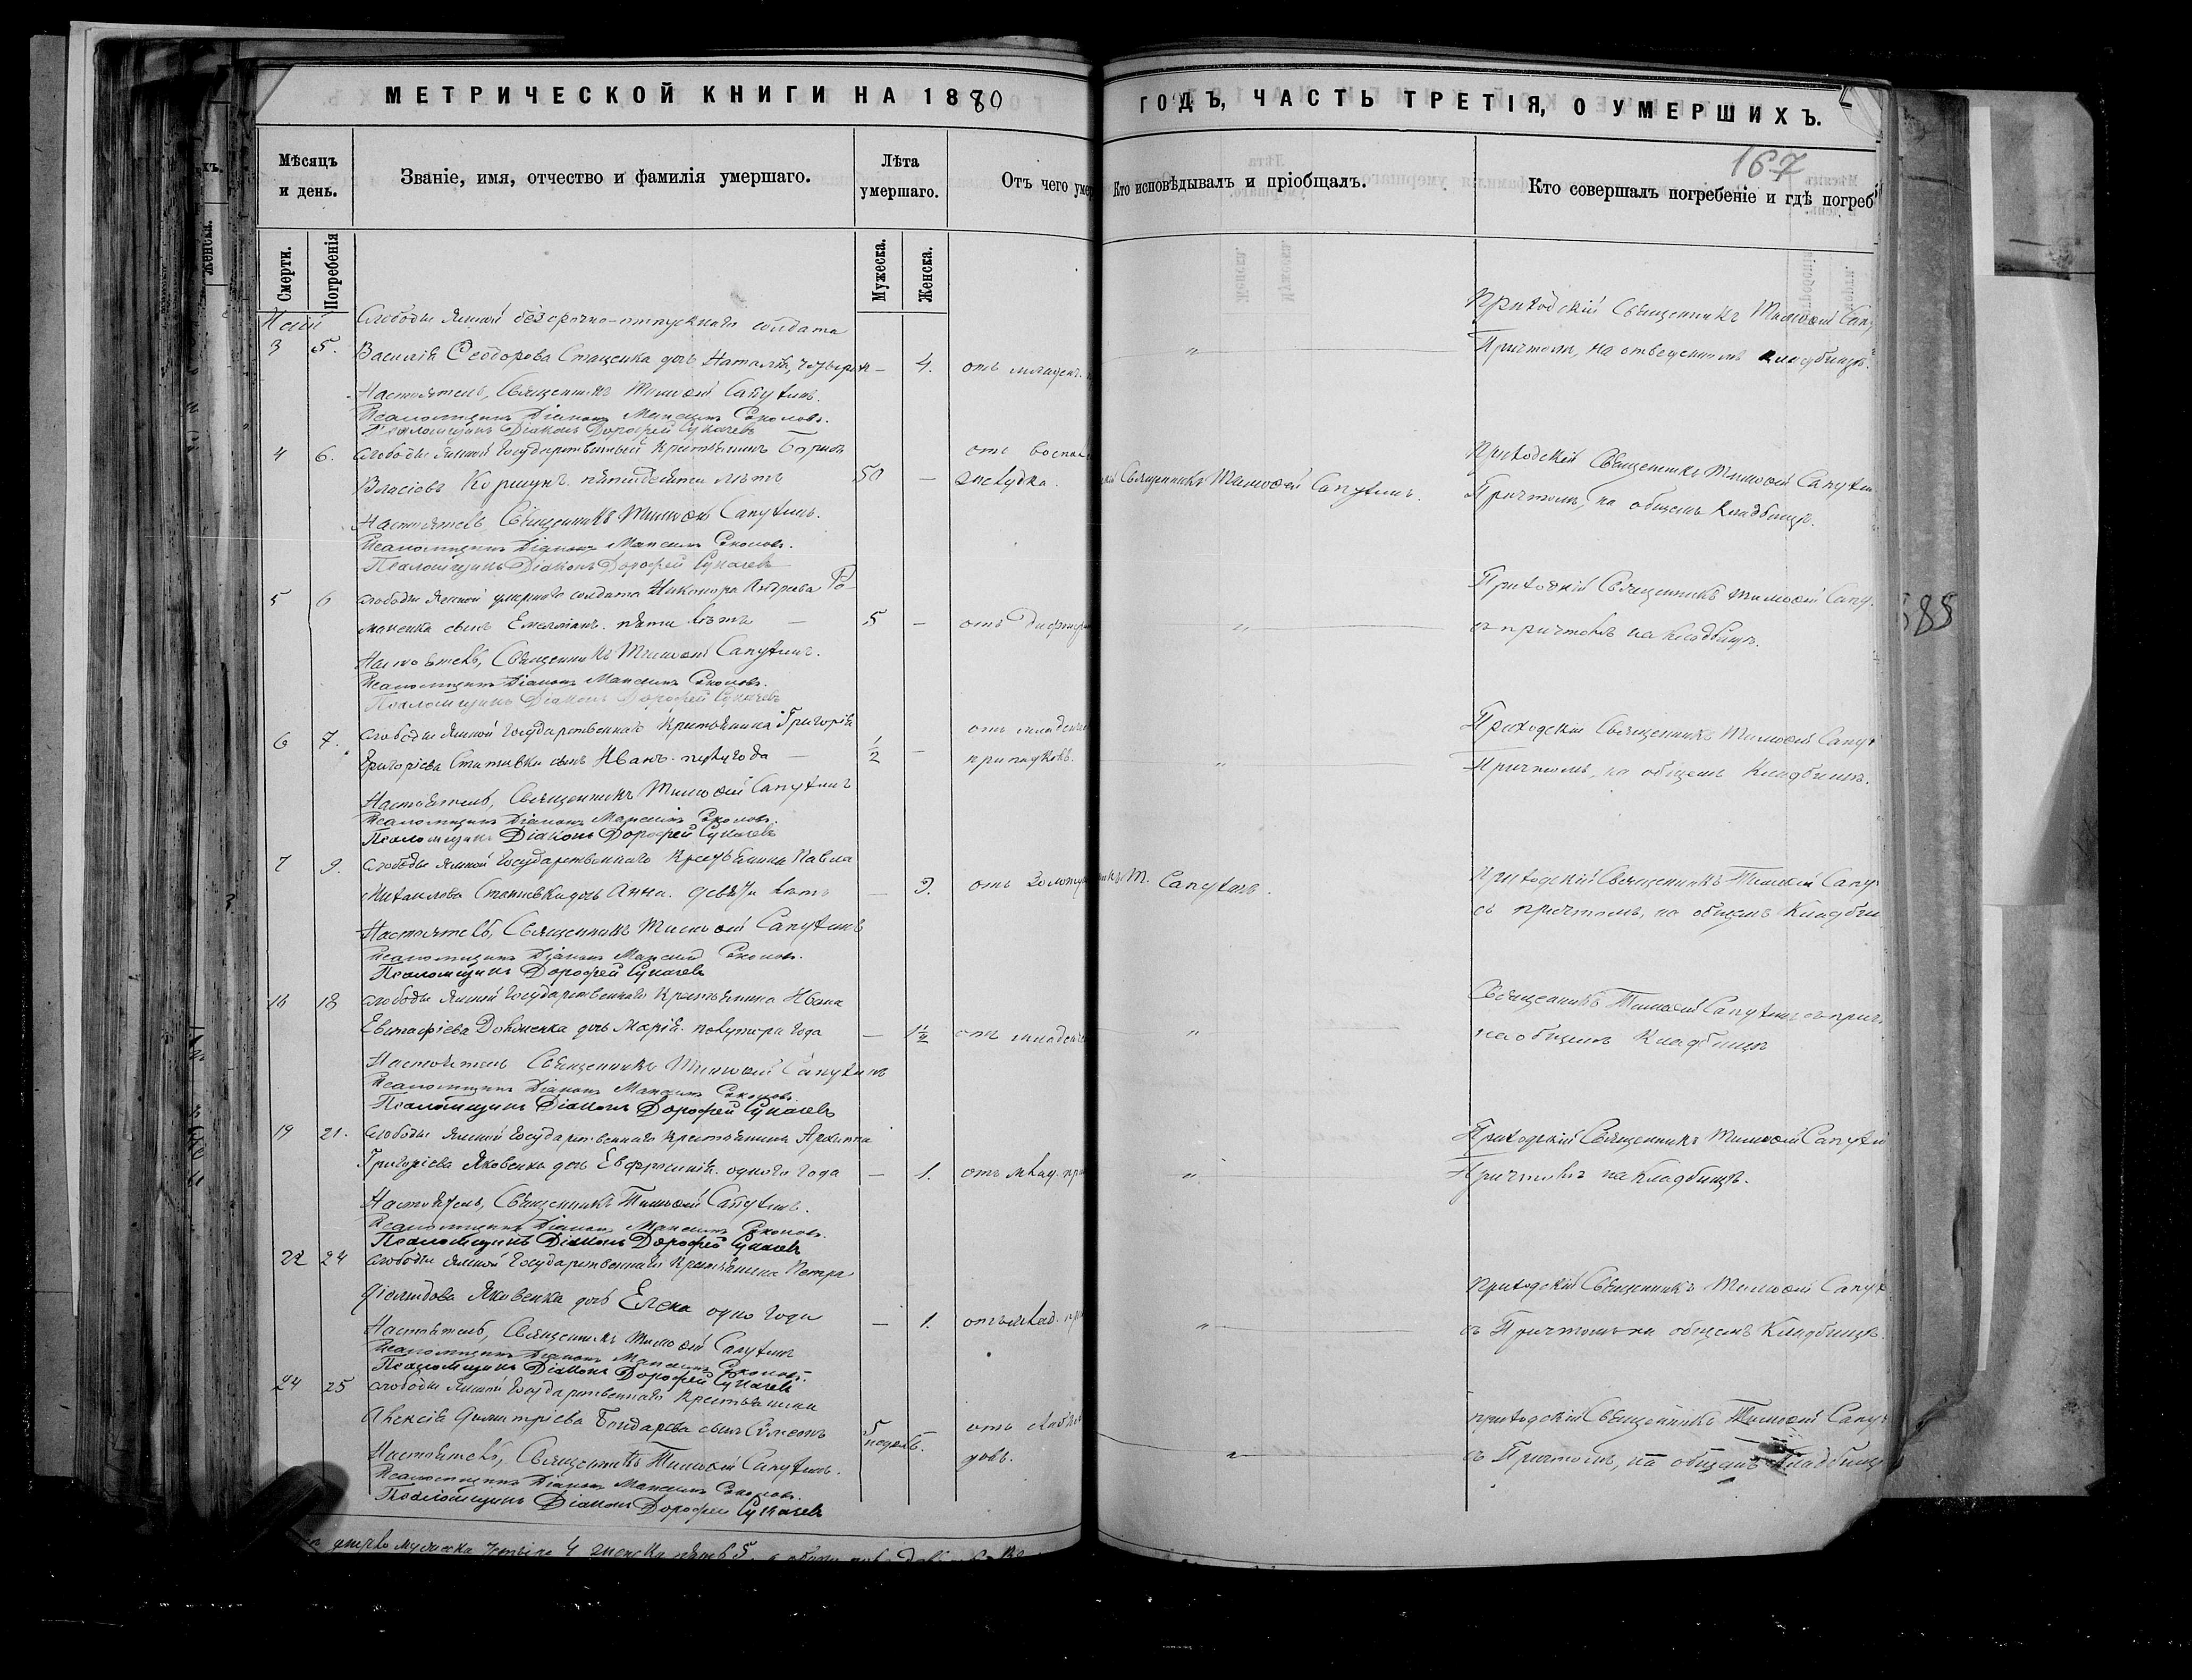 МЕТРИЧЕСКОЙ КНИГИ НА 1880
ГОДЪ, ЧАСТЬ ТРЕТІЯ, О УМЕРШИХЪ.
167
Мѣсяцъ и день.
Званіе, имя, отчество и фамилія умершаго.
Лѣта умершаго.
Отъ чего умер
Кто исповѣдывалъ и пріобщалъ.
Кто совершалъ погребеніе и гдѣ погреб
Смерти.
Погребенія
Мужеска.
Женска.
Слободы Ямной безсрочно-отпускнаго солдата
3 5. Василія Ѳеодорова Стаценка дочь Наталія, четырехъ — 4. отъ младенч.
Приходскій Священникъ Тимоѳей Сапу
Причтомъ, на отведенномъ кладбищѣ.
Настоятель, Священникъ Тимоѳей Сапухинъ.
Псаломщикъ Діаконъ Максимъ
Псаломщикъ Діаконъ Дорофей Сукачевъ
4 6. Слободы Ямной Государственный Крестьянинъ
Власіовъ Коршунъ пятидесяти лѣтъ 50 — отъ воспал желудка.
Священникъ Тимоѳей Сапухинъ.
Приходскій Священникъ Тимоѳей Сапухин
Причтомъ, на общемъ Кладбищѣ.
Настоятель, Священникъ Тимоѳей Сапухинъ.
Псаломщикъ Діаконъ Максимъ
Псаломщикъ Діаконъ Дорофей Сукачевъ
5 6 Слободы Ямной солдата Никонора Андреева Ро-
маненка сынъ Емельянъ. пяти лѣтъ — 5 — отъ Дифтер
Приходскій Священникъ Тимоѳей Сапу.
съ причтомъ на Кладбищѣ.
Настоятель, Священникъ Тимоѳей Сапухинъ.
Псаломщикъ Діаконъ Максимъ
Псаломщикъ Діаконъ Дорофей Сукачевъ
6 7. Слободы Ямной Государственнаго Крестьянина Григорія
Григорьева Стативки сынъ Иванъ. полугода — 1/2 — отъ младенч припадковъ.
Приходскій Священникъ Тимоѳей Сапух
Причтомъ, на общемъ Кладбищѣ.
Настоятель, Священникъ Тимоѳей Сапухинъ
Псаломщикъ Діаконъ Максимъ
Псаломщикъ Діаконъ Дорофей Сукачевъ
7 9. Слободы Ямной Государственнаго Крестьянина Павла
Михаилова Стативки дочь Анна. девяти лѣтъ — 9. отъ Золотух
Т. Сапухинъ.
Приходскій Священникъ Тимоѳей Сапу
съ причтомъ, на общемъ Кладби
Настоятель, Священникъ Тимоѳей Сапухинъ
Псаломщикъ Діаконъ Максимъ
Псаломщикъ Дорофей Сукачевъ
16 18 Слободы Ямной Государственнаго Крестьянина Ивана
Евстафіева дочь Марія. полутора года — 1 1/2 отъ младенч
Священникъ Тимоѳей Сапухинъ съ прич.
на общемъ Кладбищѣ
Настоятель Священникъ Тимоѳей Сапухинъ
Псаломщикъ Діаконъ Максимъ
Псаломщикъ Діаконъ Дорофей Сукачевъ
19 21. Слободы Ямной Государственнаго Крестьянина Архиппа
Григорьева Яковенка дочь Евфросинія. одного года — 1. отъ млад. при
Приходскій Священникъ Тимоѳей Сапухи
Причтомъ на Кладбищѣ.
Настоятель, Священникъ Тимоѳей Сапухинъ.
Псаломщикъ Діаконъ Максимъ
Псаломщикъ Діаконъ Дорофей Сукачевъ
22 24 Слободы Ямной Государственнаго Крестьянина Петра
Яковенка дочь Елена одно года — 1. отъ млад. при
Приходскій Священникъ Тимоѳей Сапух
съ Причтомъ на общемъ Кладбищѣ.
Настоятель, Священникъ Тимоѳей Сапухинъ
Псаломщикъ Діаконъ Максимъ
Псаломщикъ Діаконъ Дорофей Сукачевъ
24 25 Слободы Ямной Государственнаго Крестьянина
Алексія Димитріева Бондарева сынъ Симеонъ 5 недель.
Приходскій Священникъ Тимоѳей Сапу
съ Причтомъ, на общемъ Кладбищѣ
Настоятель, Священникъ Тимоѳей Сапухинъ.
Псаломщикъ Діаконъ Максимъ
Псаломщикъ Діаконъ Дорофей Сукачевъ
мужеска четыре 4 женска пять 5
585